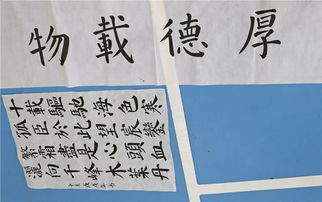 厚德載物
十載驅馳海色寒
孤臣於此望宸鑾
繁霜盡是心頭血
灑向千峰秋葉丹